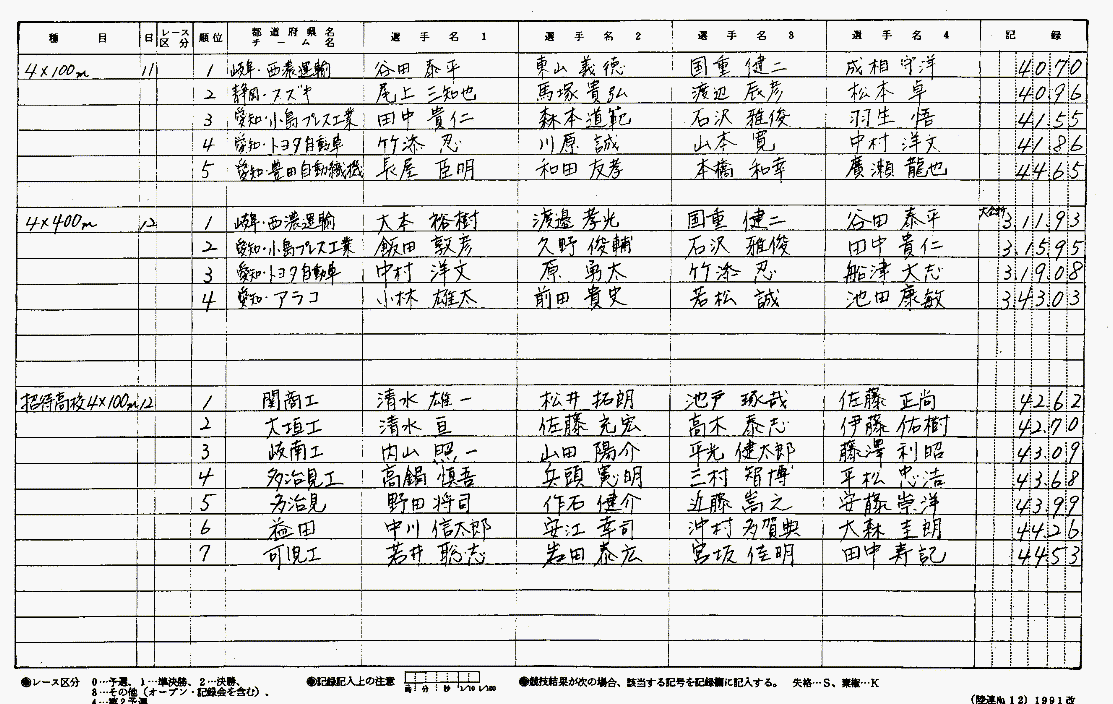 種目 日 レース区分 順位 都道府県名 チーム名 選手名1 選手名2 選手名3 選手名4 記録
4×100m 11 1 岐阜・西濃運輸 谷田 泰平 東山 義徳 国重 健二 成相 守洋 4070
2 静岡・スズキ 尾上 三知也 馬塚 貴弘 渡辺 辰彦 松本 卓 4096
3 愛知・小島プレス工業 田中 貴仁 森本 道範 石沢 雅俊 羽生 悟 4155
4 愛知・トヨタ自動車 竹添 忍 川原 誠 山本 寛 中村 洋文 4186
5 愛知・豊田自動織機 長屋 臣明 和田 友孝 本橋 和幸 廣瀬 龍也 4465
4×400m 12 1 岐阜・西濃運輸 大本 裕樹 渡邉 孝光 国重 健二 谷田 泰平 31193
2 愛知・小島プレス工業 飯田 敦彦 久野 俊輔 石沢 雅俊 田中 貴仁 31595
3 愛知・トヨタ自動車 中村 洋文 原 勇太 竹添 忍 船津 大志 31908
4 愛知・アラコ 小林 雄太 前田 貴史 若松 誠 池田 康敏 34303
招待高校4×100m 12 1 関商工 清水 雄一 松井 拓朗 池戸 琢哉 佐藤 正尚 4262
2 大垣工 清水 亘 佐藤 充宏 高木 泰志 伊藤 佑樹 4270
3 岐南工 内山 照一 山田 陽介 平光 健太郎 藤澤 利昭 4309
4 多治見工 高鍋 慎吾 兵頭 憲明 三村 智博 平松 忠浩 4368
5 多治見 野田 将司 作石 健介 近藤 嵩之 安藤 崇洋 4399
6 益田 中川 信太郎 安江 幸司 沖村 多賀典 大森 圭朗 4426
7 可児工 若井 聡志 岩田 泰広 宮坂 佳明 田中 寿記 4453
●レース区分 0…予選、1…準決勝、2…決勝、 ●記録記入上の注意 時 分 秒 1/10 1/100 ●競技結果が次の場合、該当する記号を記録欄に記入する。 失格…S、棄権…K
3…その他（オープン・記録会を含む）、
4…第2予選 (陸連№12) 1991改